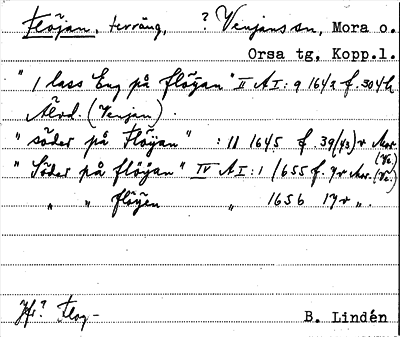 Flöjan, terräng, ? Venjans sn, Mora o.
Orsa tg, Kopp.l.
" 1 lass Eng på flöÿan" II A I: 9 1642 f. 304h
Älvd. (Venjan).
" söder på Flöÿan" : 11 1645 f 39(43)v Mor. (Ve.)
" Söder på flöÿan" IV A I: 1 1655 f. 9v Mor. (Ve.)
" " flöÿen " 1656 17v ".
Jfr? Flog-
B. Lindén